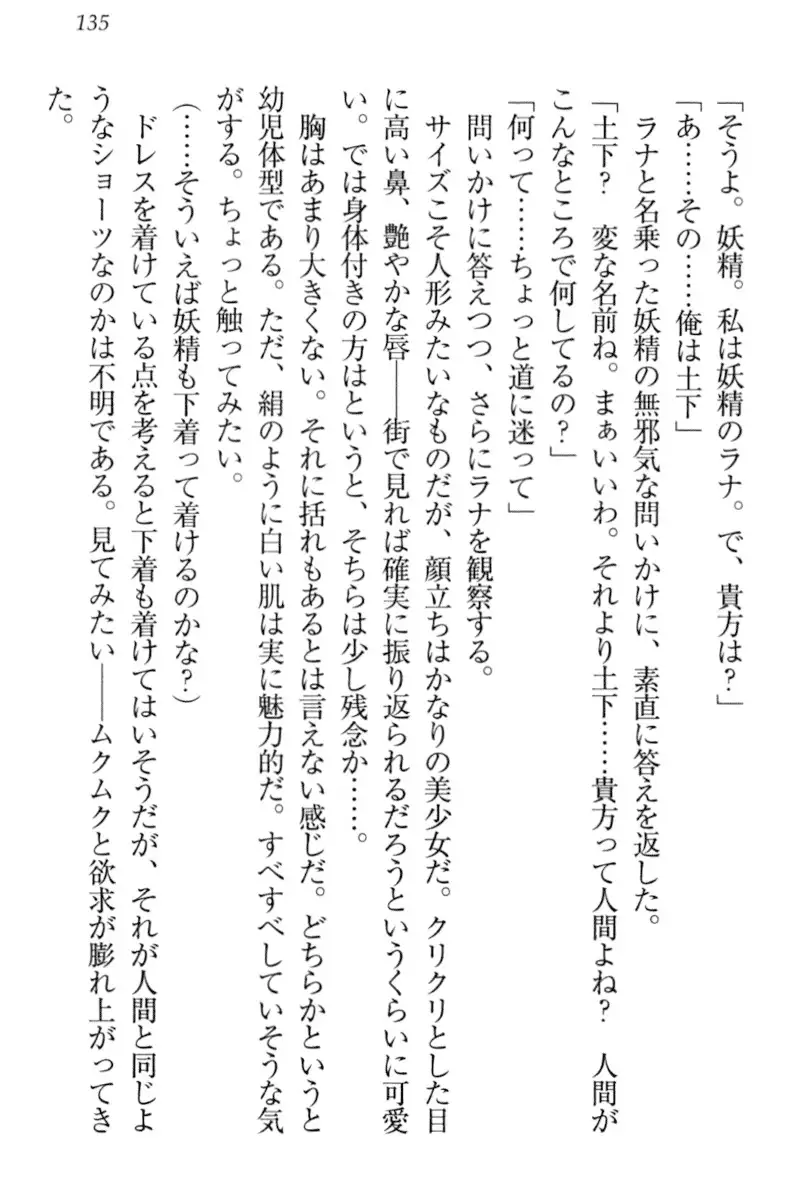 135
「そうよ。妖精。私は妖精のラナ。で、貴方は？」
「あ……その……俺は土下」
ラナと名乗った妖精の無邪気な問いかけに、素直に答えを返した。
「土下？　変な名前ね。まぁいいわ。それより土下……貴方って人間よね？　人間が
こんなところで何してるの？」
「何って……ちょっと道に迷って」
問いかけに答えつつ、さらにラナを観察する。
サイズこそ人形みたいなものだが、顔立ちはかなりの美少女だ。クリクリとした目
に高い鼻、艶やかな唇――街で見れば確実に振り返られるだろうというくらいに可愛
い。では身体付きの方はというと、そちらは少し残念か……。
胸はあまり大きくない。それに括れもあるとは言えない感じだ。どちらかというと
幼児体型である。ただ、絹のように白い肌は実に魅力的だ。すべすべしていそうな気
がする。ちょっと触ってみたい。
（……そういえば妖精も下着って着けるのかな？）
ドレスを着けている点を考えると下着も着けてはいそうだが、それが人間と同じよ
うなショーツなのかは不明である。見てみたい――ムクムクと欲求が膨れ上がってき
た。